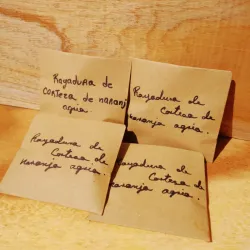 Rayadura de
corteza de naranj
agria.
Rayadura de
Corteza de
naranja agria.
Rayadura de
Corteza de
naranja agria.
Rayadura de
Corteza de
naranja agria.